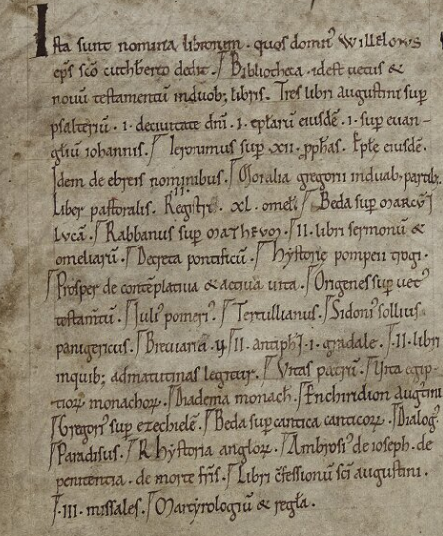 Ista sunt nomina librorum. quos domin' Willelmus
ep̄s sc̄o cuthberto dedit. Bibliotheca. idest uetus &
nouū testamentū induob; libris. Tres libri augustini sup̄
psalteriū. i. deciuitate dn̄i. i. ep̄larū eiusdē. i. sup̄ euan-
gliū iohannis. Ieronimus sup̄ xii. pphas. Ep̄le eiusdē.
Idem de ebreis nominibus. Moralia gregorii induab; partib;
Liber pastoralis. Registrū. xl. omel. Beda sup̄ marcū &
lucā. Rabbanus sup̄ matheum. ii. libri sermonū &
omeliarū. Decreta pontificū. hystorie pompeii trogi.
Prosper de contēplatiua & actiua uita. Origenes sup̄ uet'
testam̄tū. Iuli' pomeri'. Tertullianus. Sidoni' sollius
panigericus. Breuiaria ii. antiph̄. i. gradale. ii. libri
inquib; admatutinas legitur. Vitas patrū. Vita egip-
tioꝝ monachoꝝ. Diadema monach. Enchiridion augtini
Gregori' sup̄ ezechielē. Beda sup̄ cantica canticoꝝ. Dialog'
Paradisus. hystoria angloꝝ. Ambrosi' de ioseph. de
penitentia. de morte fr̄is. Libri c̄fessionū sc̄i augustini.
iii. missales. Martyrologiū & regl̄a.